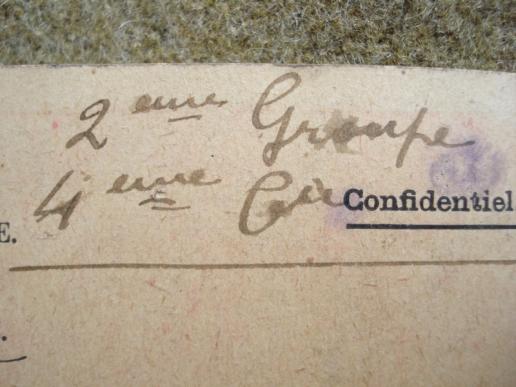 2eme Groupe
4eme Cie Confidentiel
E.